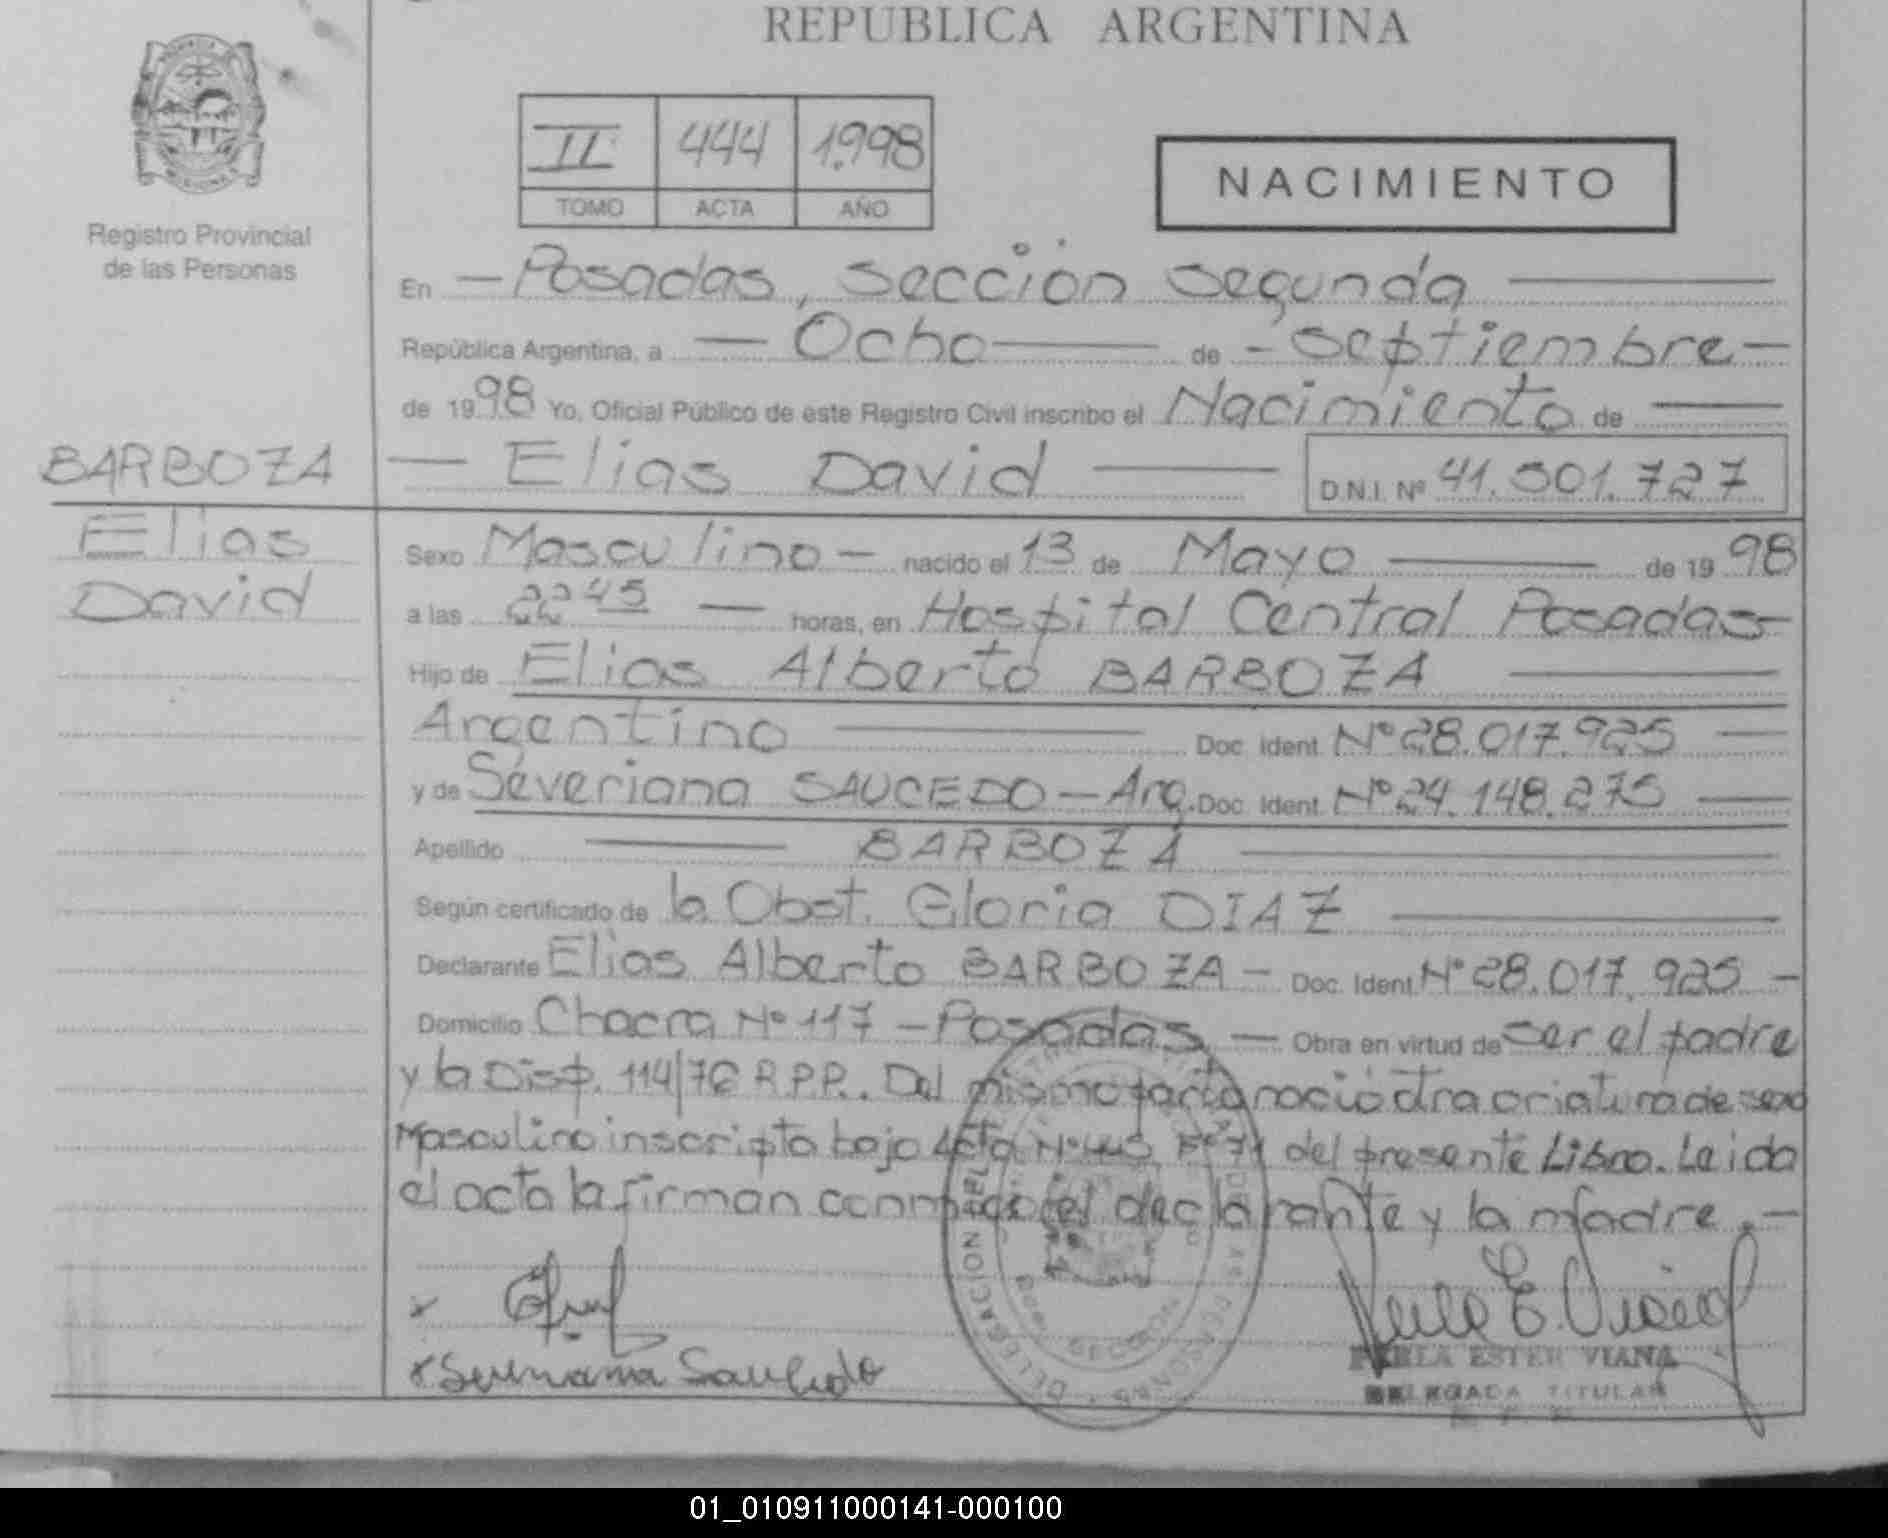 REPUBLICA ARGENTINA
II 444 1.998
TOMO ACTA AÑO
NACIMIENTO
Registro Provincial
de las Personas
En — Posadas, sección segunda —
República Argentina, a — Ocho — de - septiembre -
de 1998 Yo, Oficial Público de este Registro Civil inscribo el Nacimiento de —
BARBOZA — Elias David — D.N.I. Nº 41.501.727
Elias
David
Sexo Masculino — nacido el 13 de Mayo — de 1998
a las 2245 — horas, en Hospital Central Posadas -
Hijo de Elias Alberto BARBOZA —
Argentino — Doc. Ident. Nº 28.017.925 —
y de Severiana SAUCEDO — Arg. Doc. Ident. Nº 24.148.275 —
Apellido — BARBOZA —
Según certificado de la Obst. Gloria DIAZ —
Declarante Elias Alberto BARBOZA — Doc. Ident. Nº 28.017.925 -
Domicilio Chacra Nº 117 — Posadas — Obra en virtud de ser el padre
y la Disp. 114/76 R.P.P.. Del mismo parto nació otra criatura de sexo
Masculino inscripta bajo Acta Nº 443 Fº 71 del presente Libro. Leida
el acta la firman conmigo el declarante y la madre.-
x
x Severiana Saucedo
DELEGACION
SECCION
PERLA ESTER VIANA
DELEGADA TITULAR
01_010911000141-000100